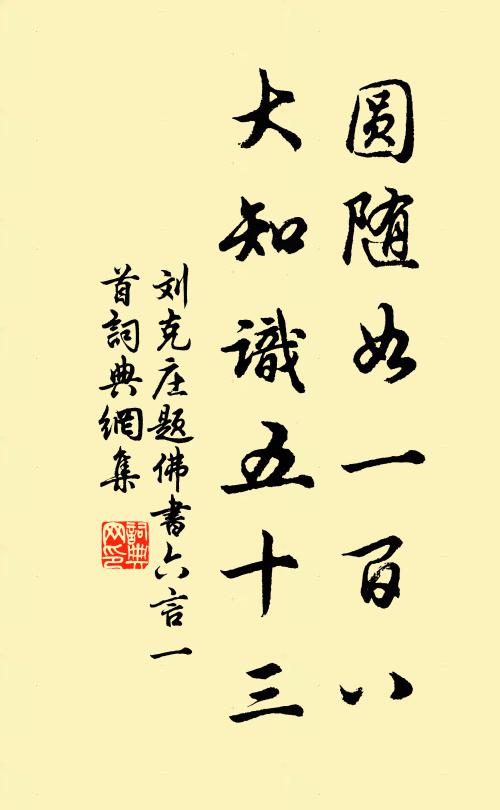 圆随如一百八
大知識五十三
刘克庄题佛書六言一
首詞典網集
詞典网印